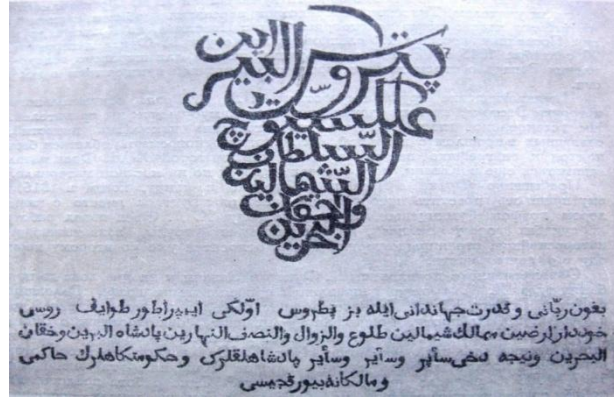 پتروس البیر ابن
علکسیوچ
السّلطان
الشّمالین
والخقان
البحرین
بعون ربّانی وقدرت جهاندانی ایله بز پطروس اوّلکی ایمپراطور طوایف روسی
خوددار ارضین ممالك شیمالین طلوع والزوال والنصف النهارین پادشاه البرین وخقان
البحرین ونیجه دخی سایر وسایر وسایر پادشاهلقلری وحکومتکاهلرك حاکمی
ومالکانه بیورغجیسی